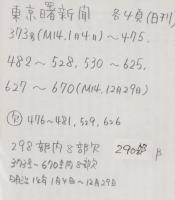 東京曙新聞 各4頁(日刊)
373号(M14.1月4日)~475.
482~528, 530~625,
627~670(M14.12月29日)
欠 476~481, 529, 626
298部内8部欠 290部
373号~670号内8部欠
明治14年1月4日~12月29日